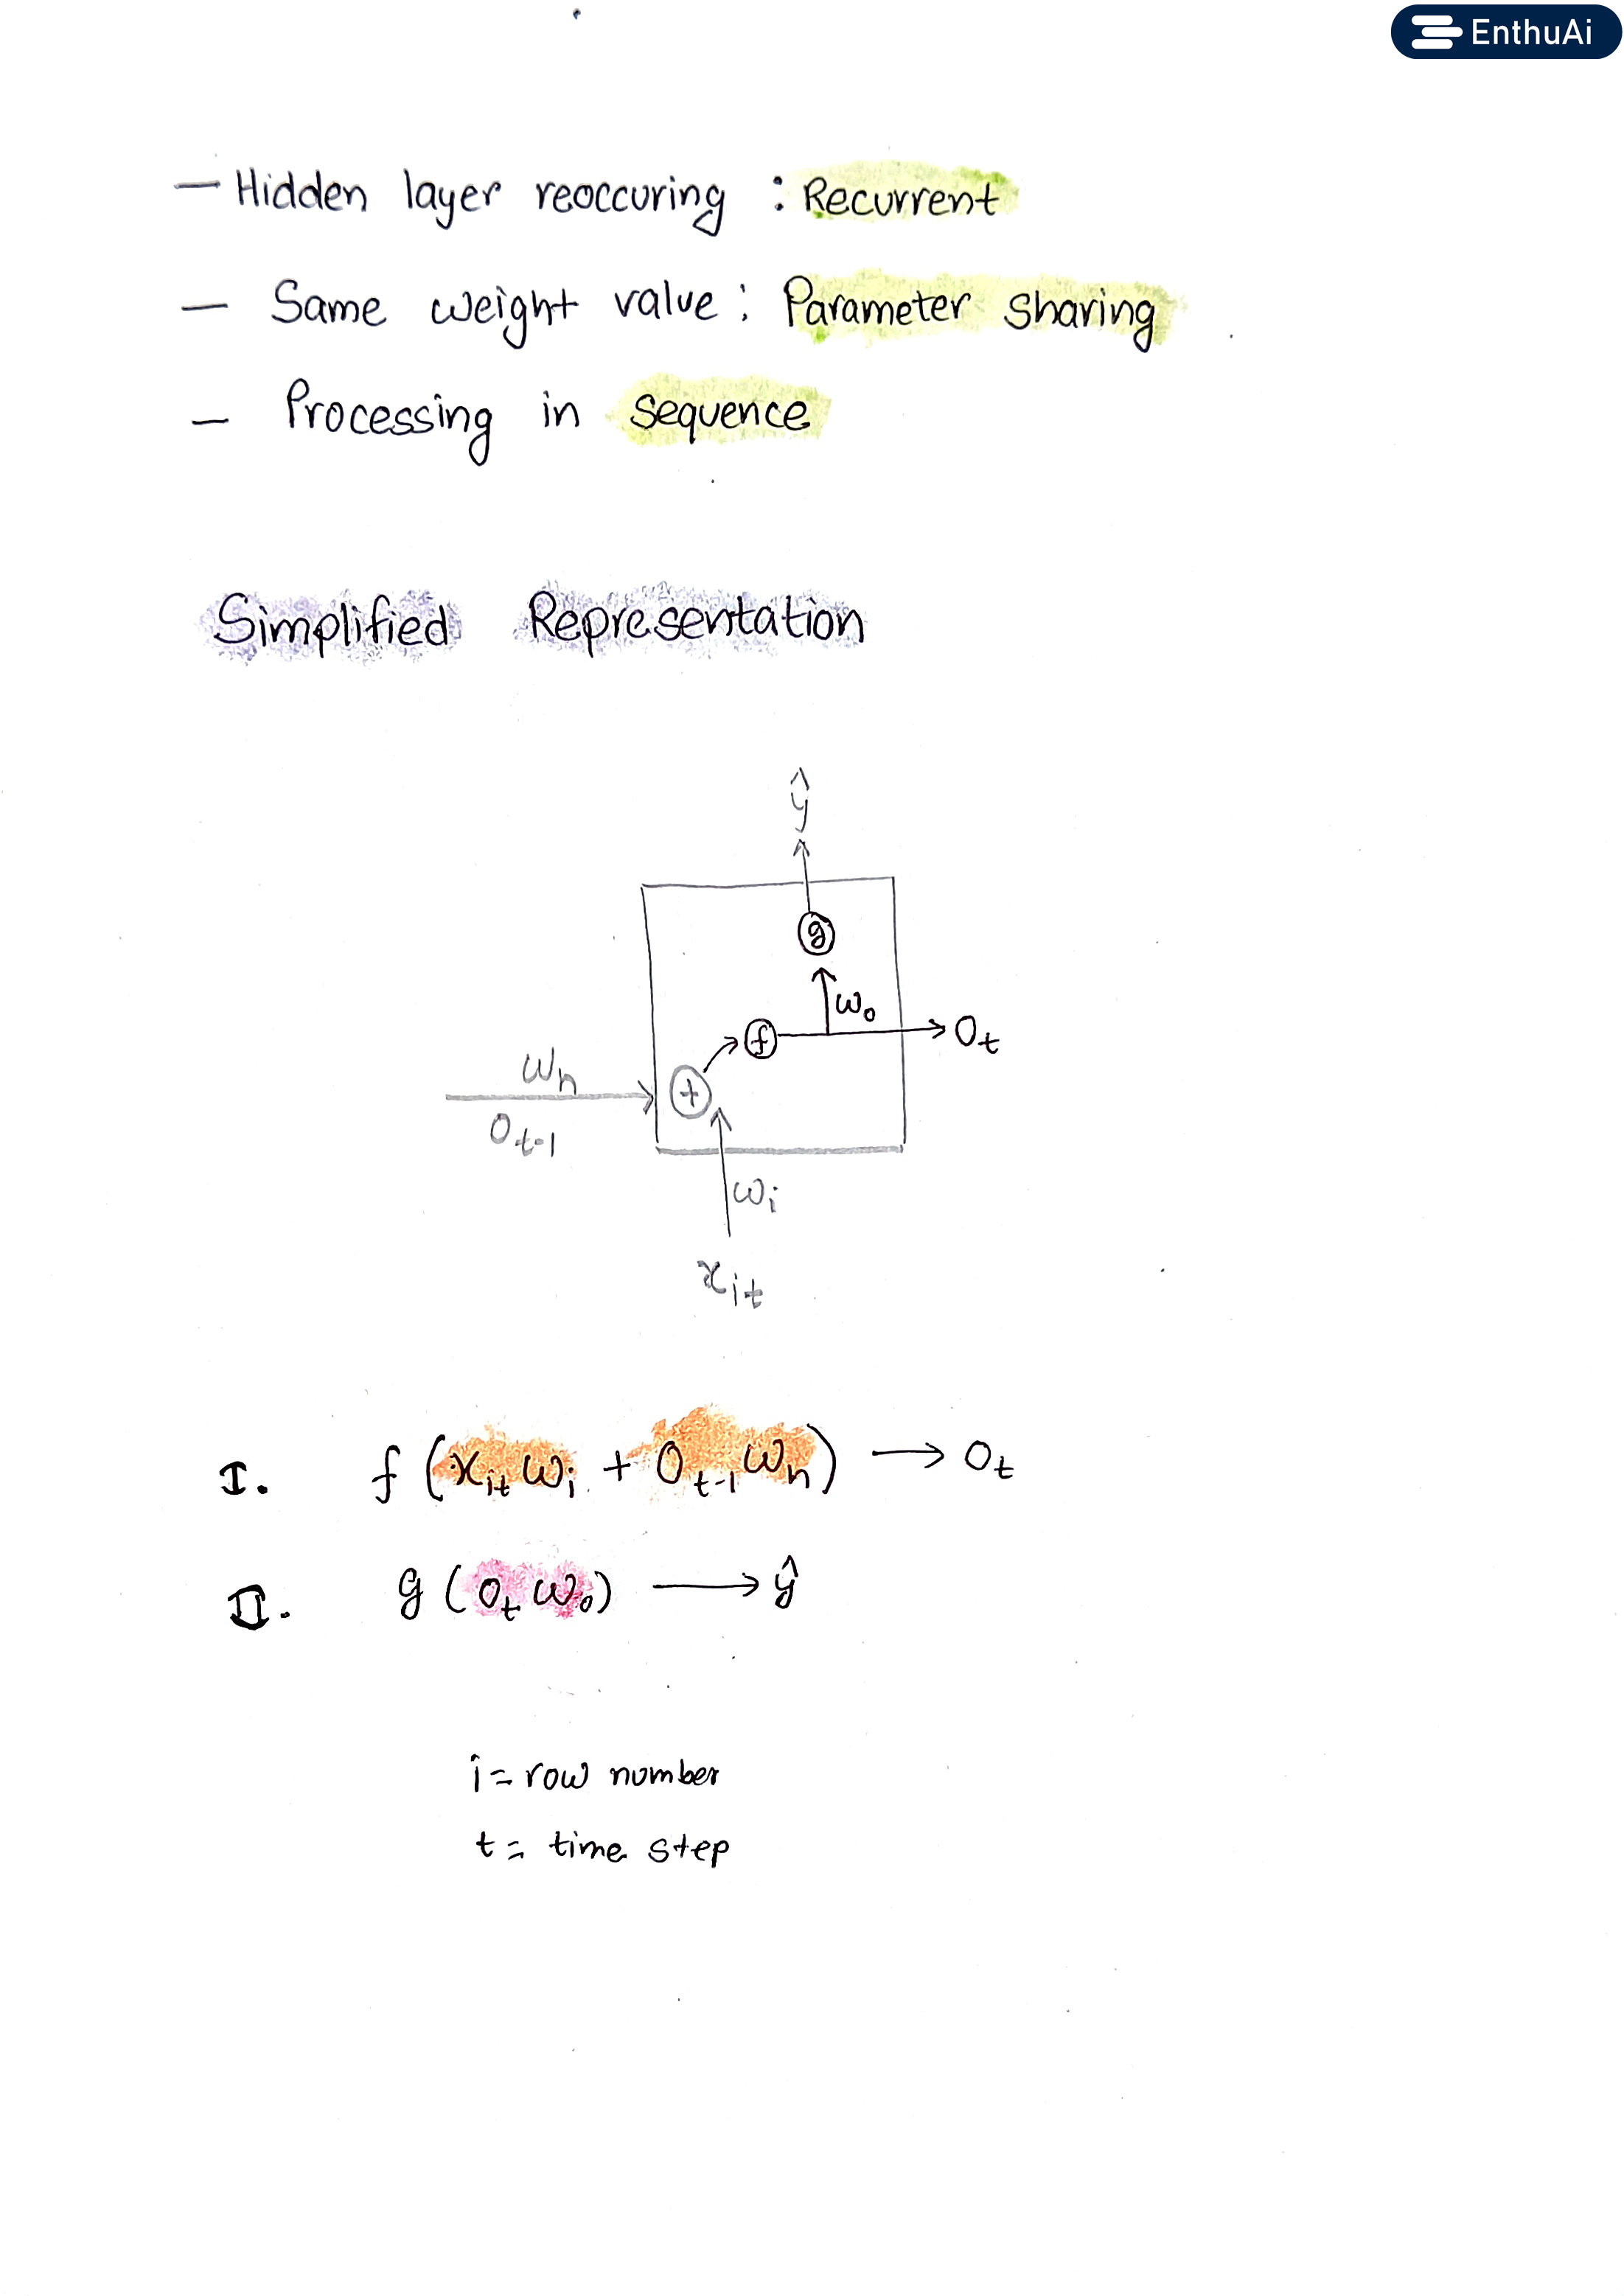 EnthuAi
— Hidden layer reoccuring : Recurrent
— Same weight value : Parameter Sharing
— Processing in sequence
Simplified Representation
ŷ
g
wₒ
f
Oₜ
wₕ
+
Oₜ₋₁
wᵢ
xᵢₜ
I. f (xᵢₜ wᵢ + Oₜ₋₁ wₕ) → Oₜ
II. g (Oₜ wₒ) → ŷ
i = row number
t = time step